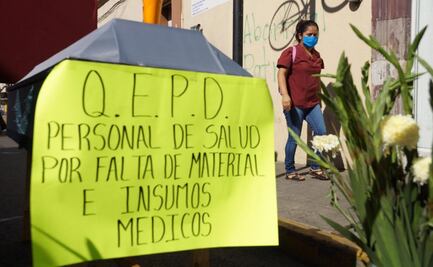 Q.E.P.D.
PERSONAL DE SALUD
POR FALTA DE MATERIAL
E INSUMOS
MEDICOS